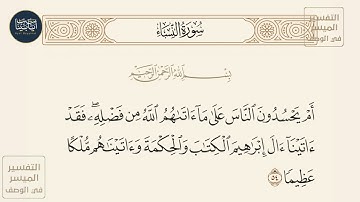 سُورَةُ النِّسَاءِ
التفسير
الميسر
في الوصف
بِسْمِ اللَّهِ الرَّحْمَٰنِ الرَّحِيمِ
أَمْ يَحْسُدُونَ ٱلنَّاسَ عَلَىٰ مَآ ءَاتَىٰهُمُ ٱللَّهُ مِن فَضْلِهِۦۖ فَقَدْ
ءَاتَيْنَآ ءَالَ إِبْرَٰهِيمَ ٱلْكِتَٰبَ وَٱلْحِكْمَةَ وَءَاتَيْنَٰهُم مُّلْكًا
عَظِيمًا ٥٤
التفسير
الميسر
في الوصف